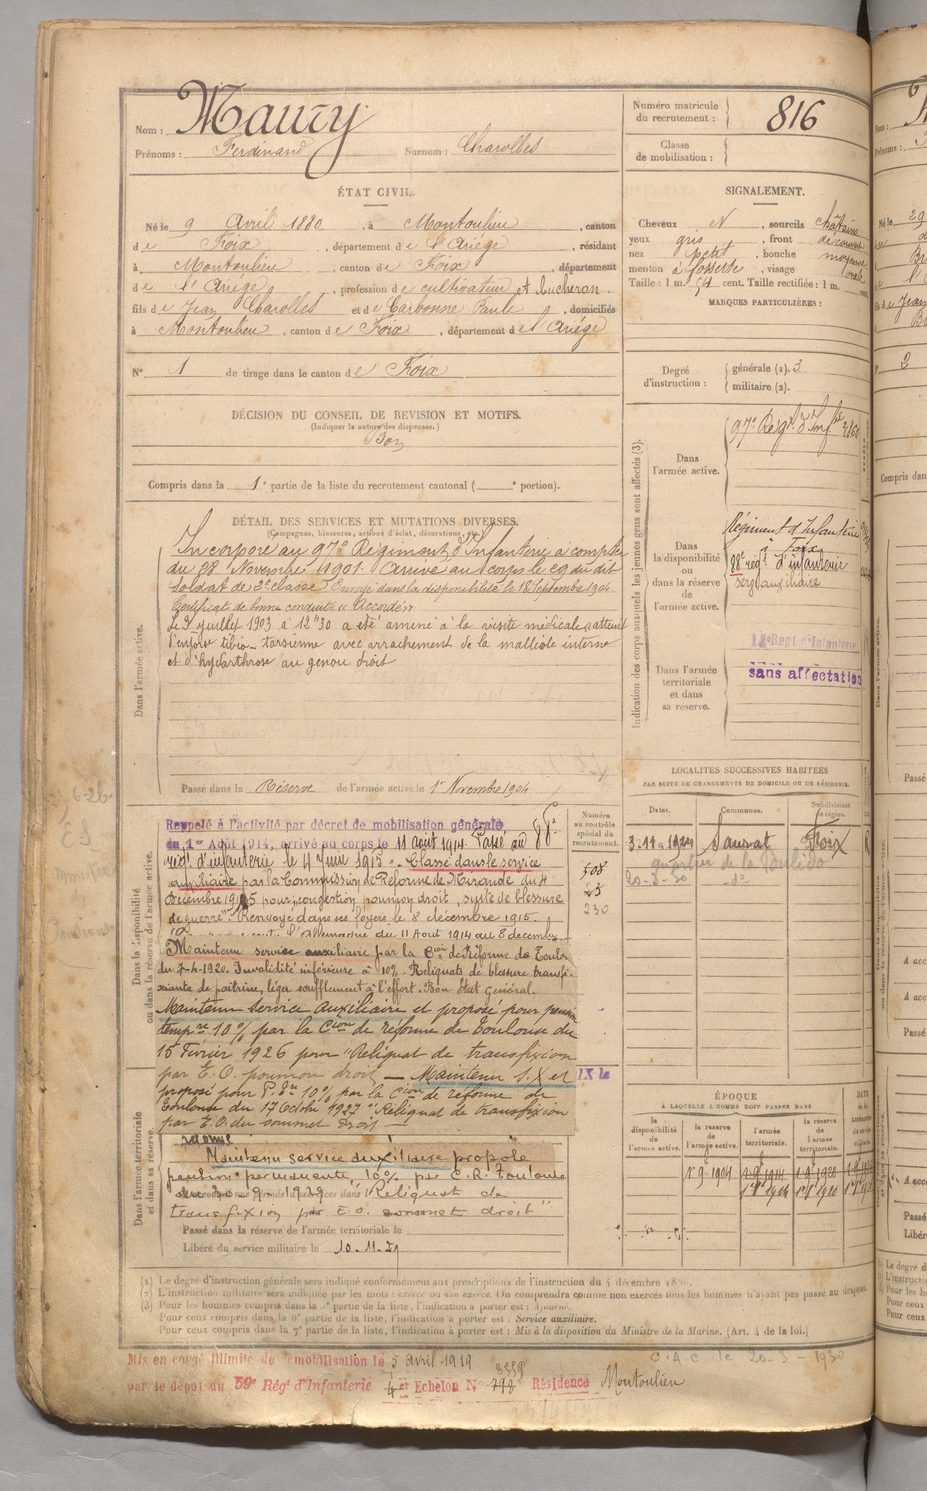 Nom : Maury
Prénoms : Ferdinand Surnom : Charolles
Numéro matricule du recrutement : 816
Classe de mobilisation :
ÉTAT CIVIL.
Né le 9 Avril 1880, à Montoulieu, canton
de Foix, département de l'Ariége, résidant
à Montoulieu, canton de Foix, département
de l'Ariége, profession de cultivateur et bucheron.
fils de Jean Charolles et de Carbonne Paule, domiciliés
à Montoulieu, canton de Foix, département de l'Ariége
N° 1 de tirage dans le canton de Foix
SIGNALEMENT.
Cheveux N, sourcils châtains
yeux gris, front découvert
nez petit, bouche moyenne
menton à fossette, visage ovale
Taille : 1 m. 54 cent. Taille rectifiée : 1 m. cent.
MARQUES PARTICULIÈRES :
Degré d'instruction : générale (1). 3
militaire (2).
DÉCISION DU CONSEIL DE REVISION ET MOTIFS.
(Indiquer la nature des dispenses.)
Bon
Compris dans la 1e partie de la liste du recrutement cantonal ( e portion).
DÉTAIL DES SERVICES ET MUTATIONS DIVERSES.
(Campagnes, blessures, actions d'éclat, décorations, etc.)
Dans l'armée active.
Incorporé au 97e Régiment d'Infanterie à compter
du 28 Novembre 1901. Arrivé au corps le 29 du dit
Soldat de 2e classe. Envoyé dans la disponibilité le 18 Septembre 1904
Certificat de bonne conduite "Accordé".
Le 3 Juillet 1903 à 12h30 a été amené à la visite médicale, atteint
d'entorse tibio-tarsienne avec arrachement de la malléole interne
et d'hydarthrose au genou droit
Passé dans la Réserve de l'armée active le 1er Novembre 1904
Indication des corps auxquels les jeunes gens sont affectés (3).
Dans l'armée active.
97e Régt d'Infrie
Dans la disponibilité ou dans la réserve de l'armée active.
Régiment d'Infanterie
à Foix
88e régt d'infanterie
serv auxiliaire
Dans l'armée territoriale et dans sa réserve.
Régt d'Infanterie
sans affectation
LOCALITÉS SUCCESSIVES HABITÉES
PAR SUITE DE CHANGEMENTS DE DOMICILE OU DE RÉSIDENCE.
Dates. Communes. Subdivision de région.
Saurat Foix
20-3-30 -do-
Dans la disponibilité ou dans la réserve de l'armée active.
Rappelé à l'activité par décret de mobilisation générale
du 1er Août 1914, arrivé au corps le 11 août 1914. Passé au 88e
régt d'infanterie le 4 Juin 1915. Classé dans le service
auxiliaire par la Commission de Réforme de Mirande du 4
Décembre 1915 pour "congestion poumon droit, suite de blessure
de guerre". Renvoyé dans ses foyers le 8 décembre 1915.
l'Allemagne du 11 Aout 1914 au 8 décembre
Maintenu service auxiliaire par la Con de Réforme de Toulouse
du 7-4-1920. Invalidité inférieure à 10%. Reliquats de blessure transfi-
xiante de poitrine, léger essoufflement à l'effort. Bon état général.
Maintenu service auxiliaire et proposé pour pension
tempre 10% par la Cion de réforme de Toulouse du
15 Février 1926 pour "Reliquat de transfixion
par E.O. poumon droit — Maintenu S.X et
proposé pour P. 10% par la Cion de réforme de
Toulouse du 17 Octobre 1927 "Reliquat de transfixion
par E.O. du sommet droit —
Numéro au contrôle spécial du recrutement.
508
25
230
Dans l'armée territoriale et dans sa réserve.
Maintenu service auxiliaire proposé
pension permanente 10% par C.R. Toulouse
"Reliquat de
transfixion par E.O. sommet droit"
Passé dans la réserve de l'armée territoriale le
Libéré du service militaire le 10.11.29
ÉPOQUE
À LAQUELLE L'HOMME DOIT PASSER DANS
la disponibilité de l'armée active. la réserve de l'armée active. l'armée territoriale. la réserve de l'armée territoriale.
(1) Le degré d'instruction générale sera indiqué conformément aux prescriptions de l'instruction du 4 décembre
(2) L'instruction militaire sera indiquée par les mots : exercé ou non exercé. On comprendra comme non exercés tous les hommes n'ayant pas passé au drapeau
(3) Pour les hommes compris dans la 5e partie de la liste, l'indication à porter est : Ajourné.
Pour ceux compris dans la 6e partie de la liste, l'indication à porter est : Service auxiliaire.
Pour ceux compris dans la 7e partie de la liste, l'indication à porter est : Mis à la disposition du Ministre de la Marine. (Art. 4 de la loi.)
Mis en congé illimité de démobilisation le 5 avril 1919
par le dépôt du 59e Régt d'Infanterie 4er Echelon N° 798 3559 Résidence Montoulieu